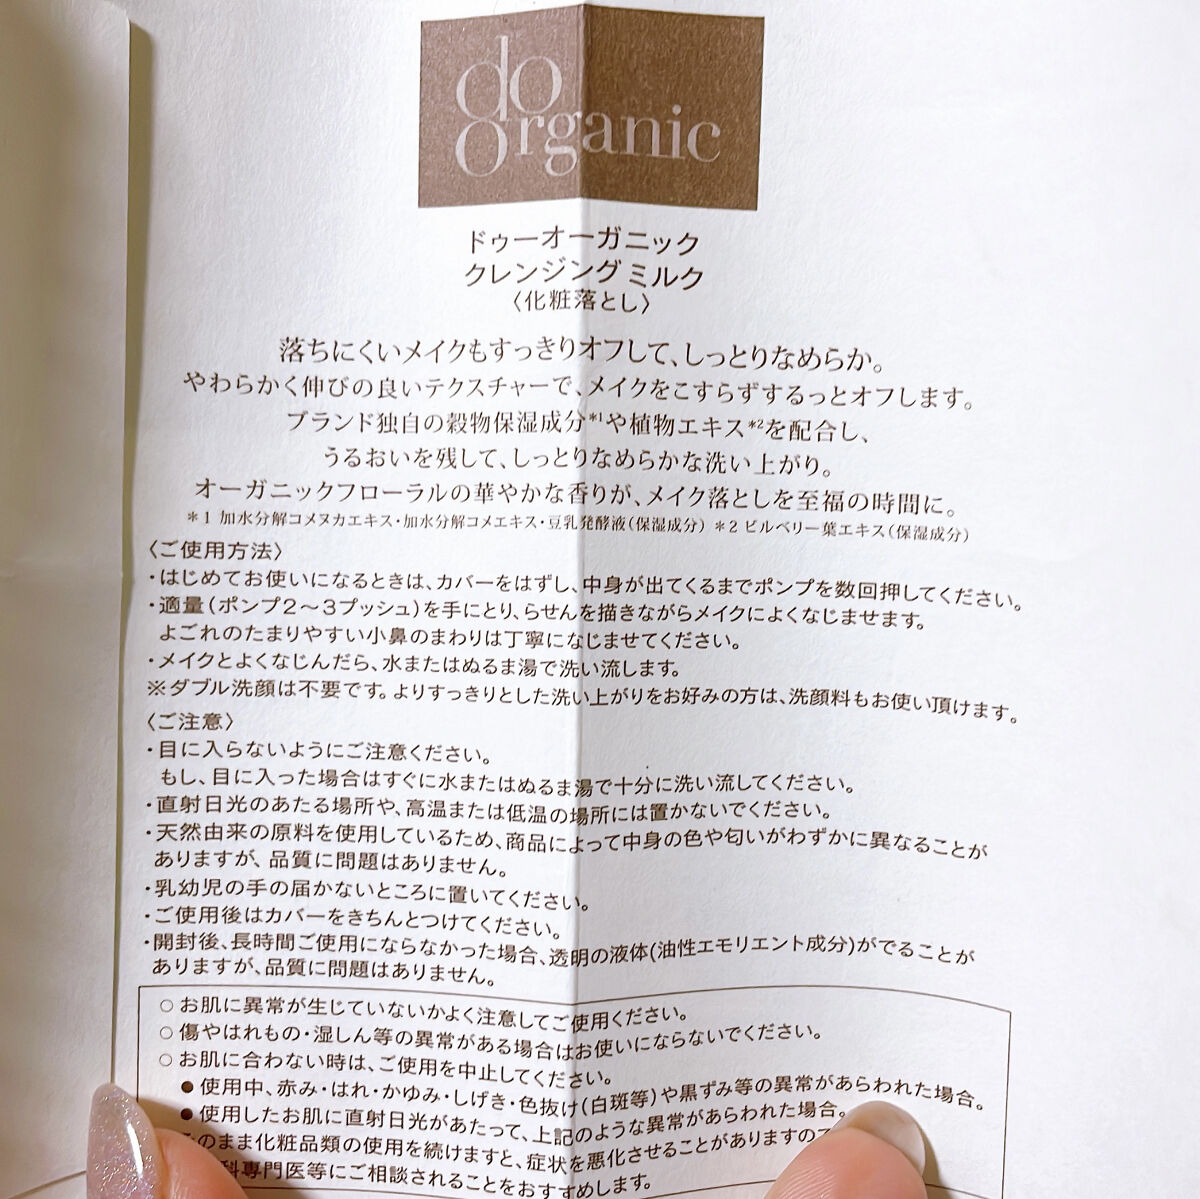 do
organic
ドゥーオーガニック
クレンジング ミルク
〈化粧落とし〉
落ちにくいメイクもすっきりオフして、しっとりなめらか。
やわらかく伸びの良いテクスチャーで、メイクをこすらずするっとオフします。
ブランド独自の穀物保湿成分*1や植物エキス*2を配合し、
うるおいを残して、しっとりなめらかな洗い上がり。
オーガニックフローラルの華やかな香りが、メイク落としを至福の時間に。
*1 加水分解コメヌカエキス・加水分解コメエキス・豆乳発酵液(保湿成分) *2 ビルベリー葉エキス(保湿成分)
〈ご使用方法〉
・はじめてお使いになるときは、カバーをはずし、中身が出てくるまでポンプを数回押してください。
・適量(ポンプ2〜3プッシュ)を手にとり、らせんを描きながらメイクによくなじませます。
よごれのたまりやすい小鼻のまわりは丁寧になじませてください。
・メイクとよくなじんだら、水またはぬるま湯で洗い流します。
※ダブル洗顔は不要です。よりすっきりとした洗い上がりをお好みの方は、洗顔料もお使い頂けます。
〈ご注意〉
・目に入らないようにご注意ください。
もし、目に入った場合はすぐに水またはぬるま湯で十分に洗い流してください。
・直射日光のあたる場所や、高温または低温の場所には置かないでください。
・天然由来の原料を使用しているため、商品によって中身の色や匂いがわずかに異なることが
ありますが、品質に問題はありません。
・乳幼児の手の届かないところに置いてください。
・ご使用後はカバーをきちんとつけてください。
・開封後、長時間ご使用にならなかった場合、透明の液体(油性エモリエント成分)がでることが
ありますが、品質に問題はありません。
○ お肌に異常が生じていないかよく注意してご使用ください。
○ 傷やはれもの・湿しん等の異常がある場合はお使いにならないでください。
○ お肌に合わない時は、ご使用を中止してください。
● 使用中、赤み・はれ・かゆみ・しげき・色抜け(白斑等)や黒ずみ等の異常があらわれた場合。
● 使用したお肌に直射日光があたって、上記のような異常があらわれた場合。
のまま化粧品類の使用を続けますと、症状を悪化させることがありますので
科専門医等にご相談されることをおすすめします。